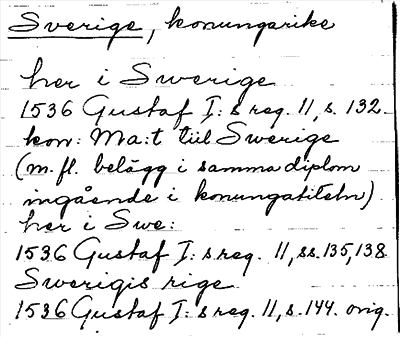 Sverige, konungarike
her i Swerige
1536 Gustaf I: s reg. 11, s. 132.
kon: Ma:t tiil Swerige
(m. fl. belägg i samma diplom
ingående i konungatiteln)
her i Swe:
1536 Gustaf I: s reg. 11, ss. 135, 138
Swerigis rige
1536 Gustaf I: s reg. 11, s. 144. orig.